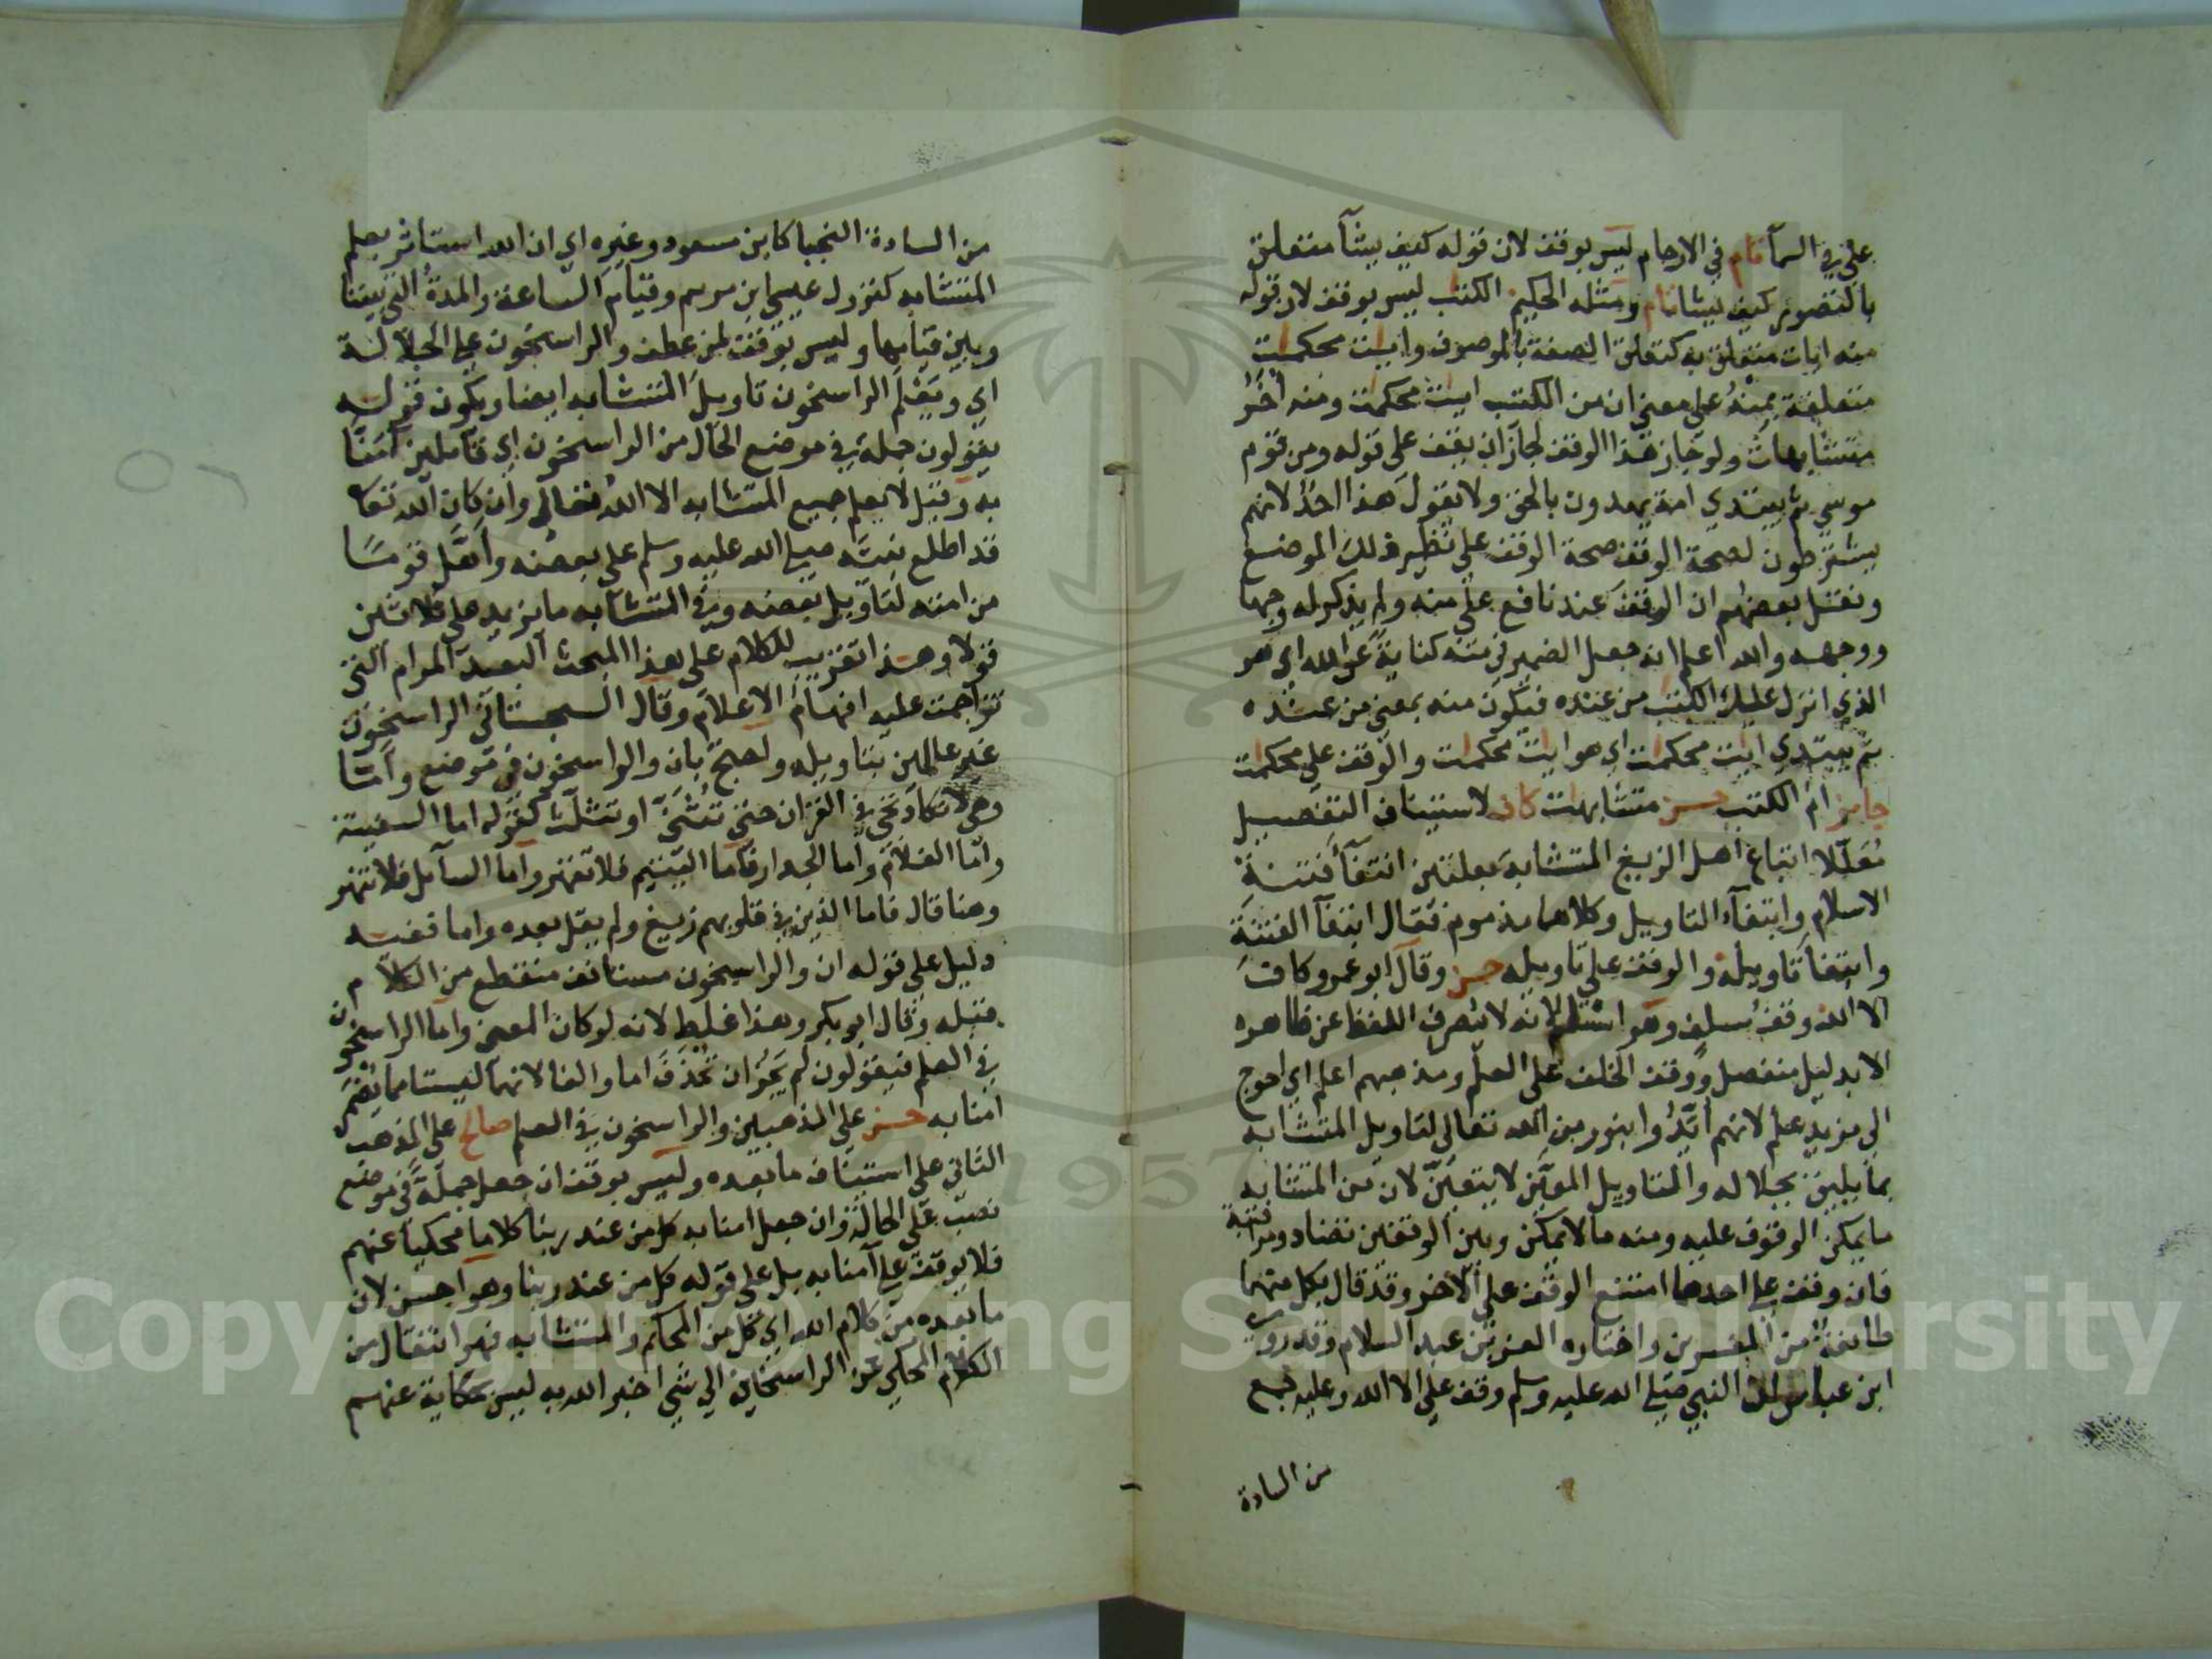 علي في السمآ تام في الارحام ليس بوقف لان قوله كيف يشآ متعلق
بالتصوير كيف يشا تام ومثله الحكيم الكتب ليس بوقف لان قوله
منه ايات متعلق به كتعلق الصفة بالموصوف وايت محكمت
متعلقة بمنه على معنى ان من الكتب ايت محكمت ومنه اخر
متشابهات ولو جاز هذا الوقف لجاز ان يقف على قوله ومن قوم
موسي ثم يبتدي امة يهدون بالحق ولا يقول هذا احد لانهم
يشترطون لصحة الوقف صحة الوقف على نظير ذلك الموضع
ونقل بعضهم ان الوقف عند نافع على منه ولم يذكر له وجها
ووجهه والله اعلم انه جعل الضمير في منه كناية عن الله اي هو
الذي انزل عليك الكتب من عنده فيكون منه بمعنى من عنده
ثم يبتدي ايت محكمت اي هو ايت محكمت والوقف علي محكمت
جايز ام الكتب حسن متشابهت كاف لاستيناف التفصيل
معللا اتباع اهل الزيغ المتشابه بعلتين ابتغآ فتنة
الاسلام وابتغآء التاويل وكلاهما مذموم فقال ابتغآ الفتنة
وابتغآ تاويله والوقف علي تاويله حسن وقال ابو عمرو كاف
الا الله وقف السلف وهو اسلم لانه لا يصرف اللفظ عن ظاهره
الا بدليل منفصل ووقف الخلف على العلم ومذهبهم اعلم اي احوج
الى مزيد علم لانهم ايدوا بنور من الله تعالي لتاويل المتشابه
بما يليق بجلاله والتاويل المعين لا يتعين لان من المتشابه
ما يمكن الوقوف عليه ومنه ما لا يمكن وبين الوقفين تضاد ومراقبة
فان وقف على احدهما امتنع الوقف علي الاخر وقد قال بكل منهما
طائفة من المفسرين واختاره العز بن عبد السلام وقد روي
ابن عباس ان النبي صلي الله عليه وسلم وقف علي الا الله وعليه جمع
من السادة
من السادة النجبا كابن مسعود وغيره اي ان الله استاثر بعلم
المتشابه كنزول عيسي ابن مريم وقيام الساعة والمدة التي بيننا
وبين قيامها وليس بوقف لمن عطف والراسخون علي الجلالة
اي ويعلم الراسخون تاويل المتشابه ايضا ويكون قوله
يقولون جملة في موضع الحال من الراسخون اي قآيلين آمنا
به وقيل لا يعلم جميع المتشابه الا الله تعالى وان كان الله تعا
قد اطلع نبيه صلي الله عليه وسلم على بعضه واهل قوما
من امته لتاويل بعضه وفي المتشابه ما يزيد على ثلاثين
قولا وهذا تقريب للكلام على هذا المبحث البعيد المرام الذي
تزاحمت عليه افهام الاعلام وقال السجستاني الراسخون
غير عالمين بتاويله واحتج بان والراسخون في موضع واما
وهي لا تكاد تجي في القران حتي تثنى او تثلث كقوله اما السفينة
واما الغلام واما الجدار فاما اليتيم فلا تقهر واما السآيل فلا تنهر
وهنا قال فاما الذين في قلوبهم زيغ ولم يقل بعده واما ففيه
دليل علي قوله ان والراسخون مستانف منقطع من الكلام
قبله وقال ابو بكر وهذا غلط لانه لو كان المعنى واما الراسخون
في العلم فيقولون لم يجز ان تحذف اما والفا لانهما ليستا مما يضمر
امنا به حسن علي المذهبين والراسخون في العلم صالح على المذهب
الثاني على استيناف ما بعده وليس بوقف ان جعل جملة في موضع
نصب على الحال وان جعل امنا به كل من عند ربنا كلاما محكيا عنهم
فلا يوقف علي آمنا به بل على قوله كل من عند ربنا وهو احسن لان
ما بعده من كلام الله اي كل من المحكم والمتشابه فهو انتقال من
الكلام المحكي عن الراسخين الي شي اخبر الله به ليس بحكاية عنهم
Copyright © King Saud University
1957